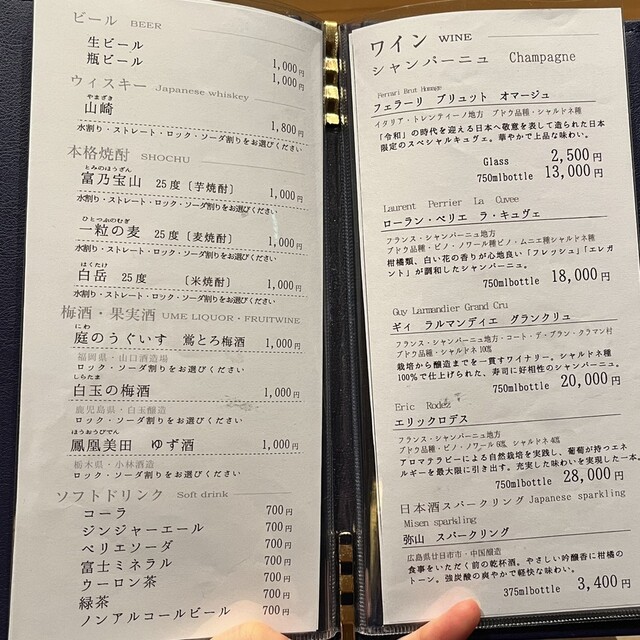 ビール BEER
生ビール 1,000円
瓶ビール 1,000円
ウィスキー Japanese whiskey
やまざき
山崎 1,800円
水割り・ストレート・ロック・ソーダ割りをお選びください
本格焼酎 SHOCHU
とみのほうざん
富乃宝山 25度〔芋焼酎〕 1,000円
水割り・ストレート・ロック・ソーダ割りをお選びください
ひとつぶのむぎ
一粒の麦 25度〔麦焼酎〕 1,000円
水割り・ストレート・ロック・ソーダ割りをお選びください
はくたけ
白岳 25度 〔米焼酎〕 1,000円
水割り・ストレート・ロック・ソーダ割りをお選びください
梅酒・果実酒 UME LIQUOR・FRUITWINE
にわ
庭のうぐいす 鶯とろ梅酒 1,000円
福岡県・山口酒造場
ロック・ソーダ割りをお選びください
しらたま
白玉の梅酒 1,000円
鹿児島県・白玉醸造
ロック・ソーダ割りをお選びください
ほうおうびでん
鳳凰美田 ゆず酒 1,000円
栃木県・小林酒造
ロック・ソーダ割りをお選びください
ソフトドリンク Soft drink
コーラ 700円
ジンジャーエール 700円
ペリエソーダ 700円
富士ミネラル 700円
ウーロン茶 700円
緑茶 700円
ノンアルコールビール 700円
ワイン WINE
シャンパーニュ Champagne
Ferrari Brut Homage
フェラーリ ブリュット オマージュ
イタリア・トレンティーノ地方 ブドウ品種・シャルドネ種
「令和」の時代を迎える日本へ敬意を表して造られた日本
限定のスペシャルキュヴェ。華やかで上品な味わい。
Glass 2,500円
750mlbottle 13,000円
Laurent Perrier La Cuvee
ローラン・ペリエ ラ・キュヴェ
フランス・シャンパーニュ地方
ブドウ品種・ピノ・ノワール種ピノ・ムニエ種シャルドネ種
柑橘類、白い花の香りが心地良い「フレッシュ」「エレガ
ント」が調和したシャンパーニュ。
750mlbottle 18,000円
Guy Larmandier Grand Cru
ギィ ラルマンディエ グランクリュ
フランス・シャンパーニュ地方・コート・デ・ブラン・クラマン村
ブドウ品種・シャルドネ 100%
栽培から醸造までを一貫すワイナリー。シャルドネ種
100%で仕上げられた、寿司に好相性のシャンパーニュ。
750mlbottle 20,000円
Eric Rodez
エリックロデス
フランス・シャンパーニュ地方
ブドウ品種・ピノ・ノワール 60% シャルドネ 40%
アロマテラピーによる自然栽培を実践し、葡萄が持つエネ
ルギーを最大限に引き出す。充実した味わいを実現した一本。
750mlbottle 28,000円
日本酒スパークリング Japanese sparkling
Misen sparkling
弥山 スパークリング
広島県廿日市市・中国醸造
食事をいただく前の乾杯酒。やさしい吟醸香に柑橘の
トーン。強炭酸の爽やかで軽快な味わい。
375mlbottle 3,400円